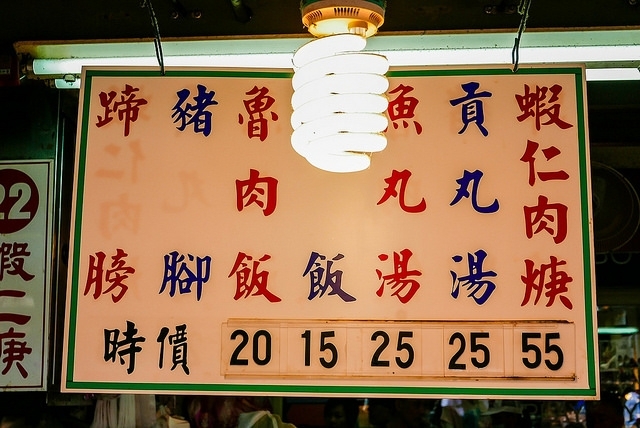 蝦仁肉焿
貢丸湯
魚丸湯
飯
魯肉飯
豬腳
蹄膀
時價 20 15 25 25 55
22